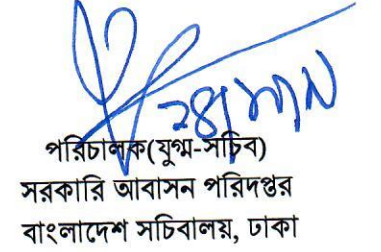 পরিচালক(যুগ্ম-সচিব)
সরকারি আবাসন পরিদপ্তর
বাংলাদেশ সচিবালয়, ঢাকা